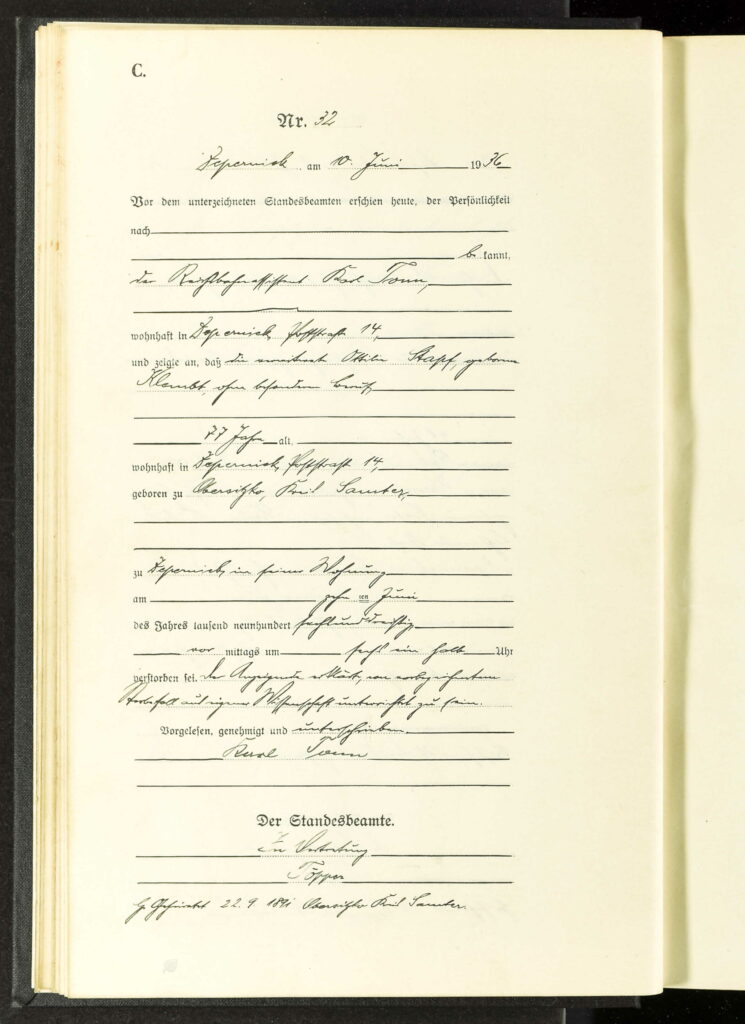 C.
Nr. 32
Zepernick am 10. Juni 1936
Vor dem unterzeichneten Standesbeamten erschien heute, der Persönlichkeit
nach
be kannt,
der Reichsbahnassistent Karl Tonn,
wohnhaft in Zepernick, Poststraße 14,
und zeigte an, daß die verwitwete Ottilie Stapf, geborene
Klembt, ohne besonderen Beruf,
77 Jahre alt,
wohnhaft in Zepernick, Poststraße 14,
geboren zu Obersitzko, Kreis Samter,
zu Zepernick, in seiner Wohnung
am zehn ten Juni
des Jahres tausend neunhundert sechsunddreißig
vor mittags um sechs ein halb Uhr
verstorben sei. Der Anzeigende erklärt, von vorbezeichnetem
Sterbefall aus eigener Wissenschaft unterrichtet zu sein.
Vorgelesen, genehmigt und unterschrieben.
Karl Tonn
Der Standesbeamte.
In Vertretung
Töpper
Geheiratet 22.9 1891 Obersitzko Kreis Samter.